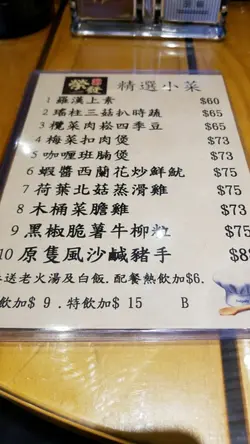 榮發 精選小菜
1 羅漢上素 $60
2 瑤柱三菇扒時蔬 $65
3 欖菜肉崧四季豆 $65
4 梅菜扣肉煲 $73
5 咖喱班腩煲 $73
6 蝦醬西蘭花炒鮮魷 $75
7 荷葉北菇蒸滑雞 $75
8 木桶菜膽雞 $73
9 黑椒脆薯牛柳粒 $75
10 原隻風沙鹹豬手 $88
送老火湯及白飯. 配餐熱飲加$6.
飲加$ 9 . 特飲加$ 15 B